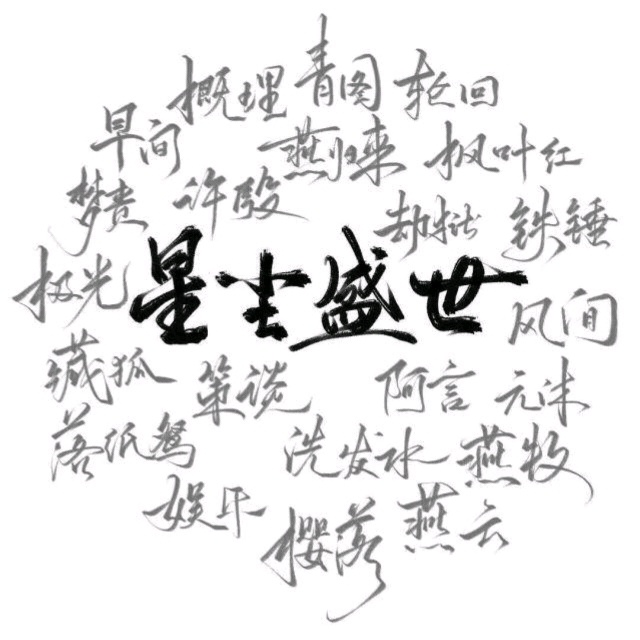 青图
概理
轮回
早间
燕归来
枫叶红
梦贵
许骏
劫
铁锤
极光
星尘盛世
风间
狐
策谈
阿言
元沫
落纸鸳
洗发水
燕牧
娱乐
樱落
燕云